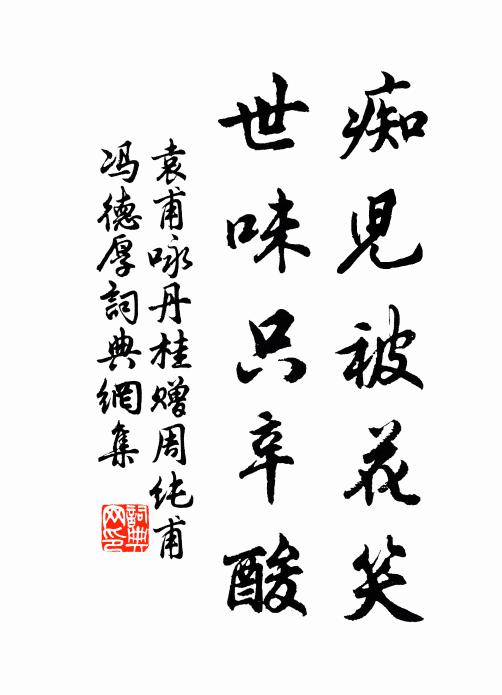 痴児被花笑
世味只辛酸
袁甫咏丹桂赠周纯甫
冯德厚詞典網集
詞典
网印